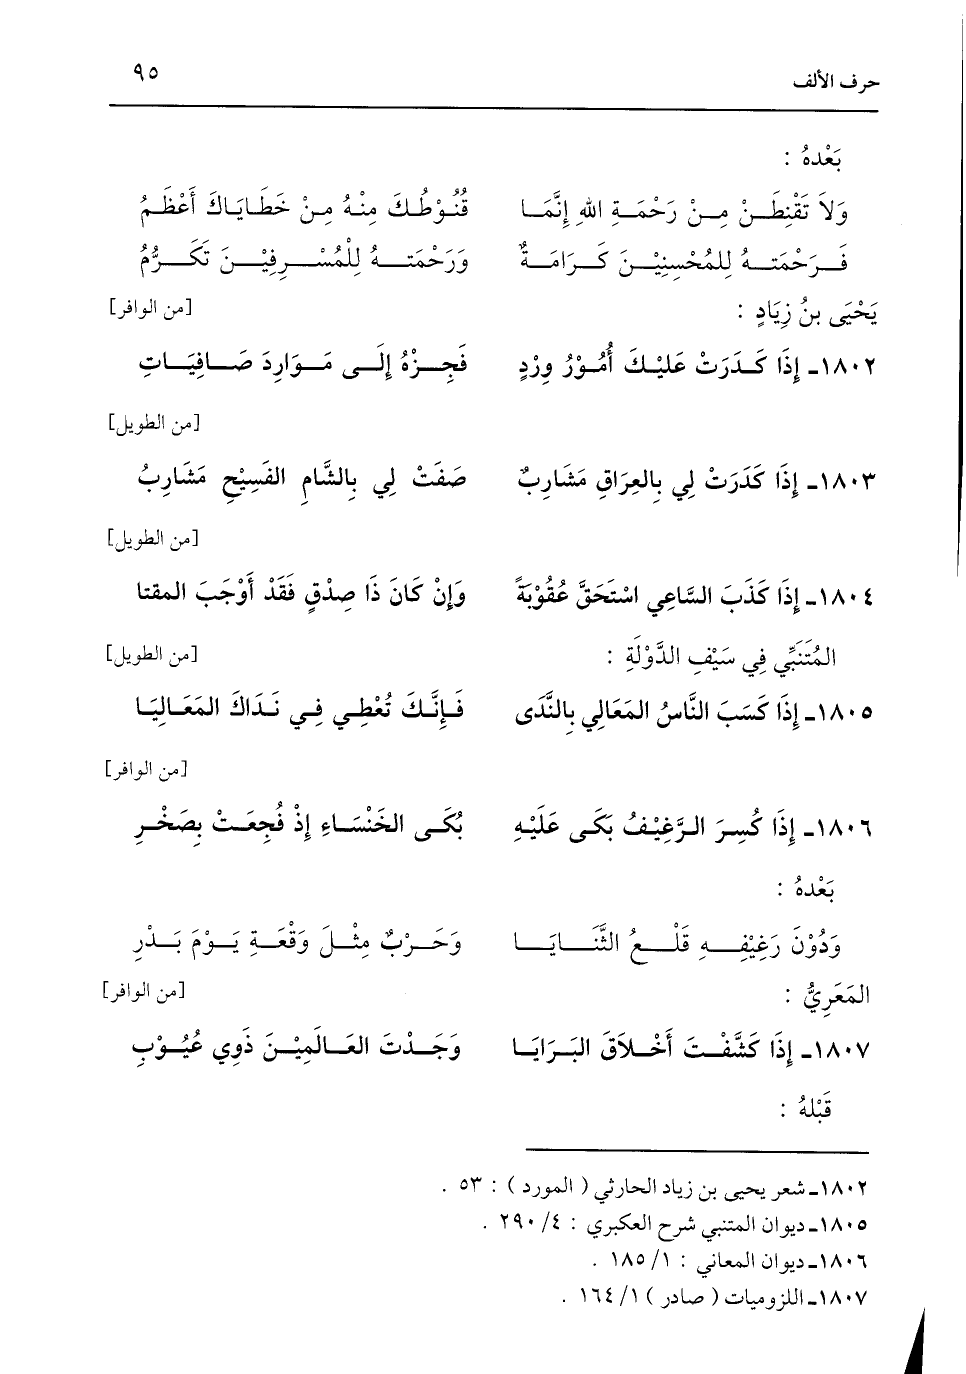 حرف الألف ٩٥
بَعْدهُ :
وَلاَ تَقْنِطَنْ مِنْ رَحْمَةِ اللهِ إِنَّمَا قُنُوْطُكَ مِنْهُ مِنْ خَطَايَاكَ أَعْظَمُ
فَرَحْمَتهُ لِلمُحْسِنِيْنَ كَرَامَةٌ وَرَحْمَتهُ لِلْمُسْرِفِيْنَ تَكَرُّمُ
يَحْيَى بنُ زِيَادٍ : [من الوافر]
١٨٠٢ـ إِذَا كَدَرَتْ عَلَيْكَ أُمُوْرُ وِرْدٍ فَجِزْهُ إِلَى مَوَارِدَ صَافِيَاتِ
[من الطويل]
١٨٠٣ـ إِذَا كَدَرَتْ لِي بِالعِرَاقِ مَشَارِبٌ صَفَتْ لِي بِالشَّامِ الفَسِيْحِ مَشَارِبُ
[من الطويل]
١٨٠٤ـ إِذَا كَذَبَ السَّاعِي اسْتَحَقَّ عُقُوْبَةً وَإِنْ كَانَ ذَا صِدْقٍ فَقَدْ أَوْجَبَ المقتا
المُتَنَبِّي فِي سَيْفِ الدَّوْلَةِ : [من الطويل]
١٨٠٥ـ إِذَا كَسَبَ النَّاسُ المَعَالِي بِالنَّدَى فَإِنَّكَ تُعْطِي فِي نَدَاكَ المَعَالِيَا
[من الوافر]
١٨٠٦ـ إِذَا كُسِرَ الرَّغِيْفُ بَكَى عَلَيْهِ بُكَى الخَنْسَاءِ إِذْ فُجِعَتْ بِصَخْرِ
بَعْدهُ :
وَدُوْنَ رَغِيْفِهِ قَلْعُ الثَّنَايَا وَحَرْبٌ مِثْلَ وَقْعَةِ يَوْمَ بَدْرِ
المَعَرِيُّ : [من الوافر]
١٨٠٧ـ إِذَا كَشَّفْتَ أَخْلاَقَ البَرَايَا وَجَدْتَ العَالَمِيْنَ ذَوِي عُيُوْبِ
قَبْلهُ :
١٨٠٢ـ شعر يحيى بن زياد الحارثي ( المورد ) : ٥٣ .
١٨٠٥ـ ديوان المتنبي شرح العكبري : ٤/ ٢٩٠ .
١٨٠٦ـ ديوان المعاني : ١/ ١٨٥ .
١٨٠٧ـ اللزوميات ( صادر ) ١/ ١٦٤ .